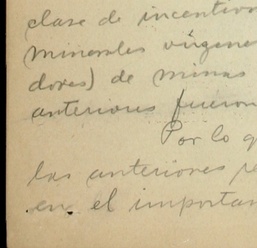 clase de incentivo
minerales vírgenes
dores) de minas
anteriores fueron
Por lo q
las anteriores pe
en el importan